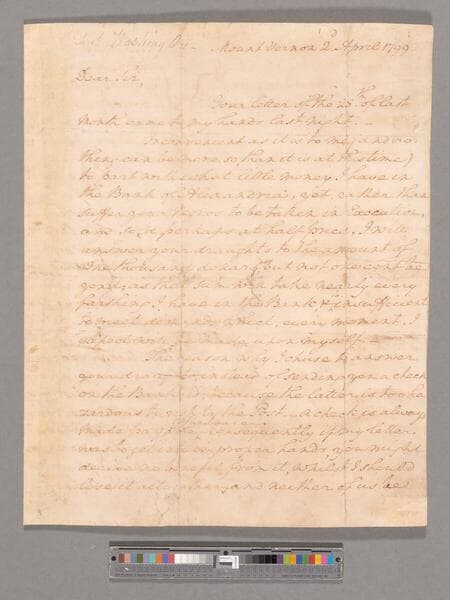 Mount Vernon 2d April 1799
Dear Sir,
Your letter of the 20th of last
month came to my hands last night.—
Inconvenient as it is to me (and no
thing can be more so than it is at this time)
to part with what little money I have in
the Bank of Alexandria, yet, rather than
suffer your Negros to be taken in Execution,
and sold perhaps at half price, I will
answer your draughts to the amount of
One thousand dollars; but not a cent be
yond, as that sum will take nearly every
farthing I have in the Bank & insufficient
to meet demands which, every moment, I
expect will be made upon myself.
The reason why I chuse to answer
your draughts instead of sending you a check
on the Bank, is, because the letter is too ha
zardous by the Post. A check is always
made payable consequently if my letter
was to get into improper hands you might
derive no benefit from it, whilst I should
lose it altogether; and neither of us be